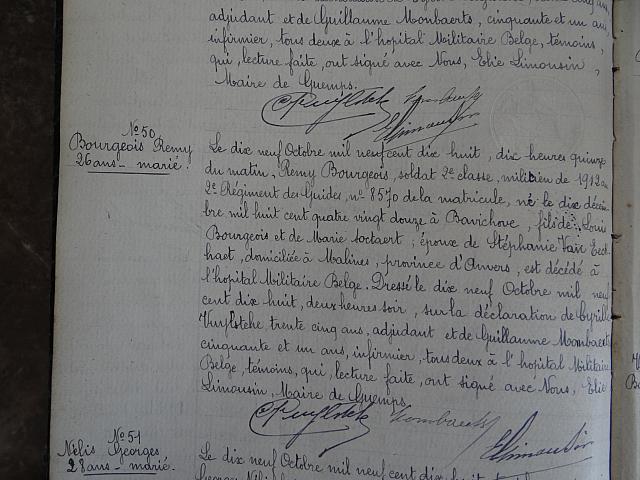 adjudant et de Guillaume Mombaerts, cinquante et un ans,
infirmier, tous deux à l'hopital Militaire Belge, témoins,
qui, lecture faite, ont signé avec Nous, Elie Limousin,
Maire de Guemps.
CVuylsteke Mombaerts
ELimousin
N° 50
Bourgeois Remy
26 ans - marié.
Le dix neuf Octobre mil neuf cent dix huit, dix heures quinze
du matin, Remy Bourgeois, soldat 2e classe, milicien de 1912 au
2e Régiment des Guides, n° 8570 de la matricule, né le dix décem-
bre mil huit cent quatre vingt douze à Bavichove, fils de Louis
Bourgeois et de Marie Soctaert; époux de Stéphanie Van Eeck-
haet, domiciliée à Malines, province d'Anvers, est décédé à
l'hopital Militaire Belge. Dressé le dix neuf Octobre mil neuf
cent dix huit, deux heures soir, sur la déclaration de Cyrille
Vuylsteke, trente cinq ans, adjudant et de Guillaume Mombaerts
cinquante et un ans, infirmier, tous deux à l'hopital Militaire
Belge, témoins, qui, lecture faite, ont signé avec Nous, Elie
Limousin, Maire de Guemps
CVuylsteke Mombaerts ELimousin
N° 51
Nélis Georges
28 ans - marié.
Le dix neuf Octobre mil neuf cent dix huit